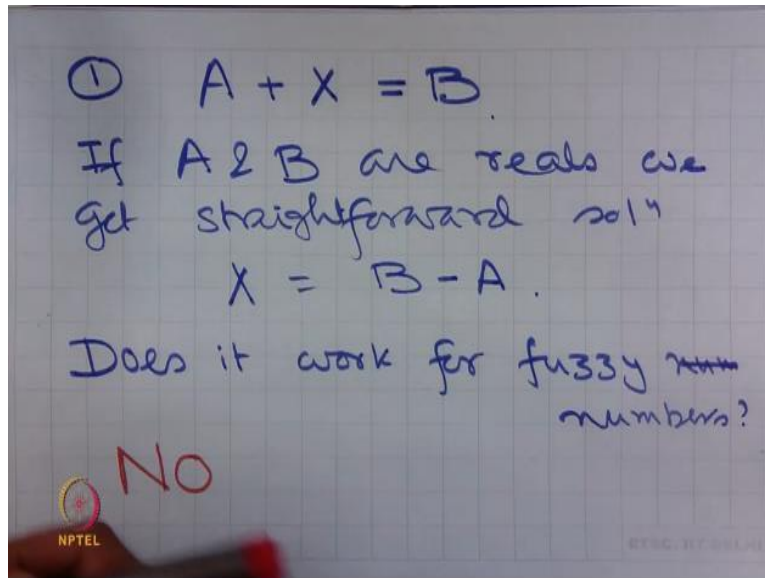 ① A + X = B.
If A & B are reals we
get straightforward solⁿ
X = B - A.
Does it work for fuzzy
numbers?
NO
NPTEL